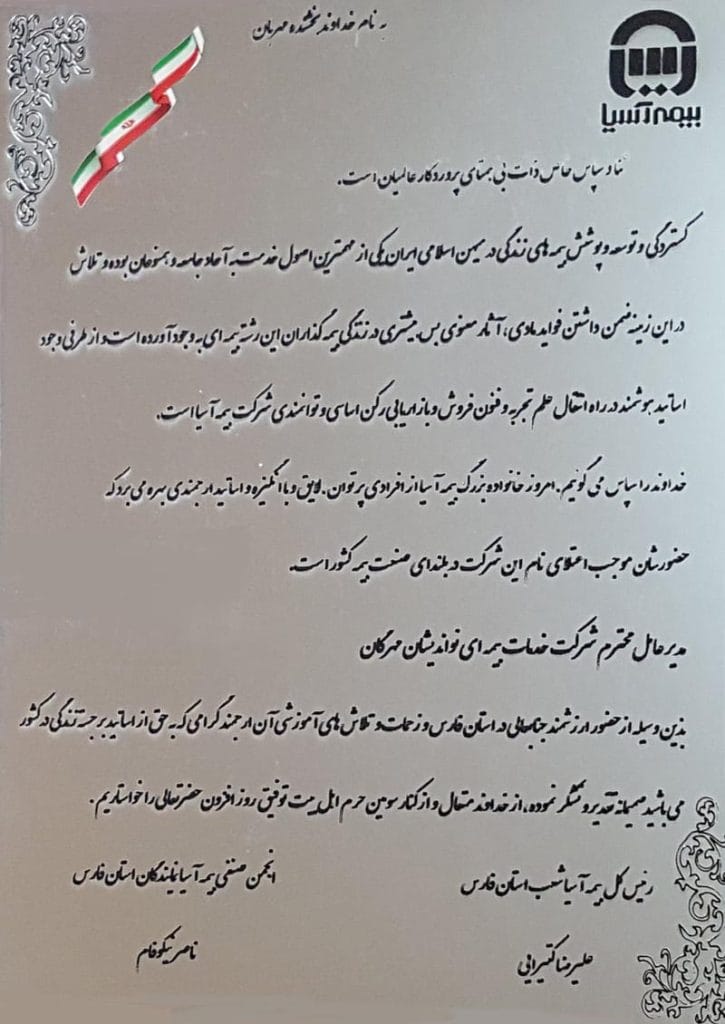 به نام خداوند بخشنده مهربان
بیمه آسیا
ثنا و سپاس خاص ذات بی همتای پروردگار عالمیان است.
گستردگی و توسعه و پوشش بیمه های زندگی در میهن اسلامی ایران یکی از مهمترین اصول خدمت به آحاد جامعه و همنوعان بوده و تلاش
در این زمینه ضمن داشتن فواید مادی، آثار معنوی بس بیشتری در زندگی بیمه گذاران این رشته بیمه ای به وجود آورده است و از طرفی وجود
اساتید هوشمند در راه انتقال علم تجربه و فنون فروش و بازاریابی رکن اساسی و توانمندی شرکت بیمه آسیا است.
خداوند را سپاس می گوئیم. امروز خانواده بزرگ بیمه آسیا از افرادی پر توان. لایق و با انگیزه و اساتید ارجمندی بهره می برد که
حضورشان موجب اعتلای نام این شرکت در بلندای صنعت بیمه کشور است.
مدیر عامل محترم شرکت خدمات بیمه ای نواندیشان مهرگان
بدین وسیله از حضور ارزشمند جنابعالی در استان فارس و زحمات و تلاش های آموزشی آن ارجمند گرامی که به حق از اساتید برجسته زندگی در کشور
می باشید صمیمانه تقدیر و تشکر نموده، از خداوند متعال و از کنار سومین حرم اهل بیت توفیق روز افزون حضرتعالی را خواستاریم.
رئیس کل بیمه آسیا شعب استان فارس
انجمن صنفی بیمه آسیا نمایندگان استان فارس
علیرضا کتیرایی
ناصر نیکوفام